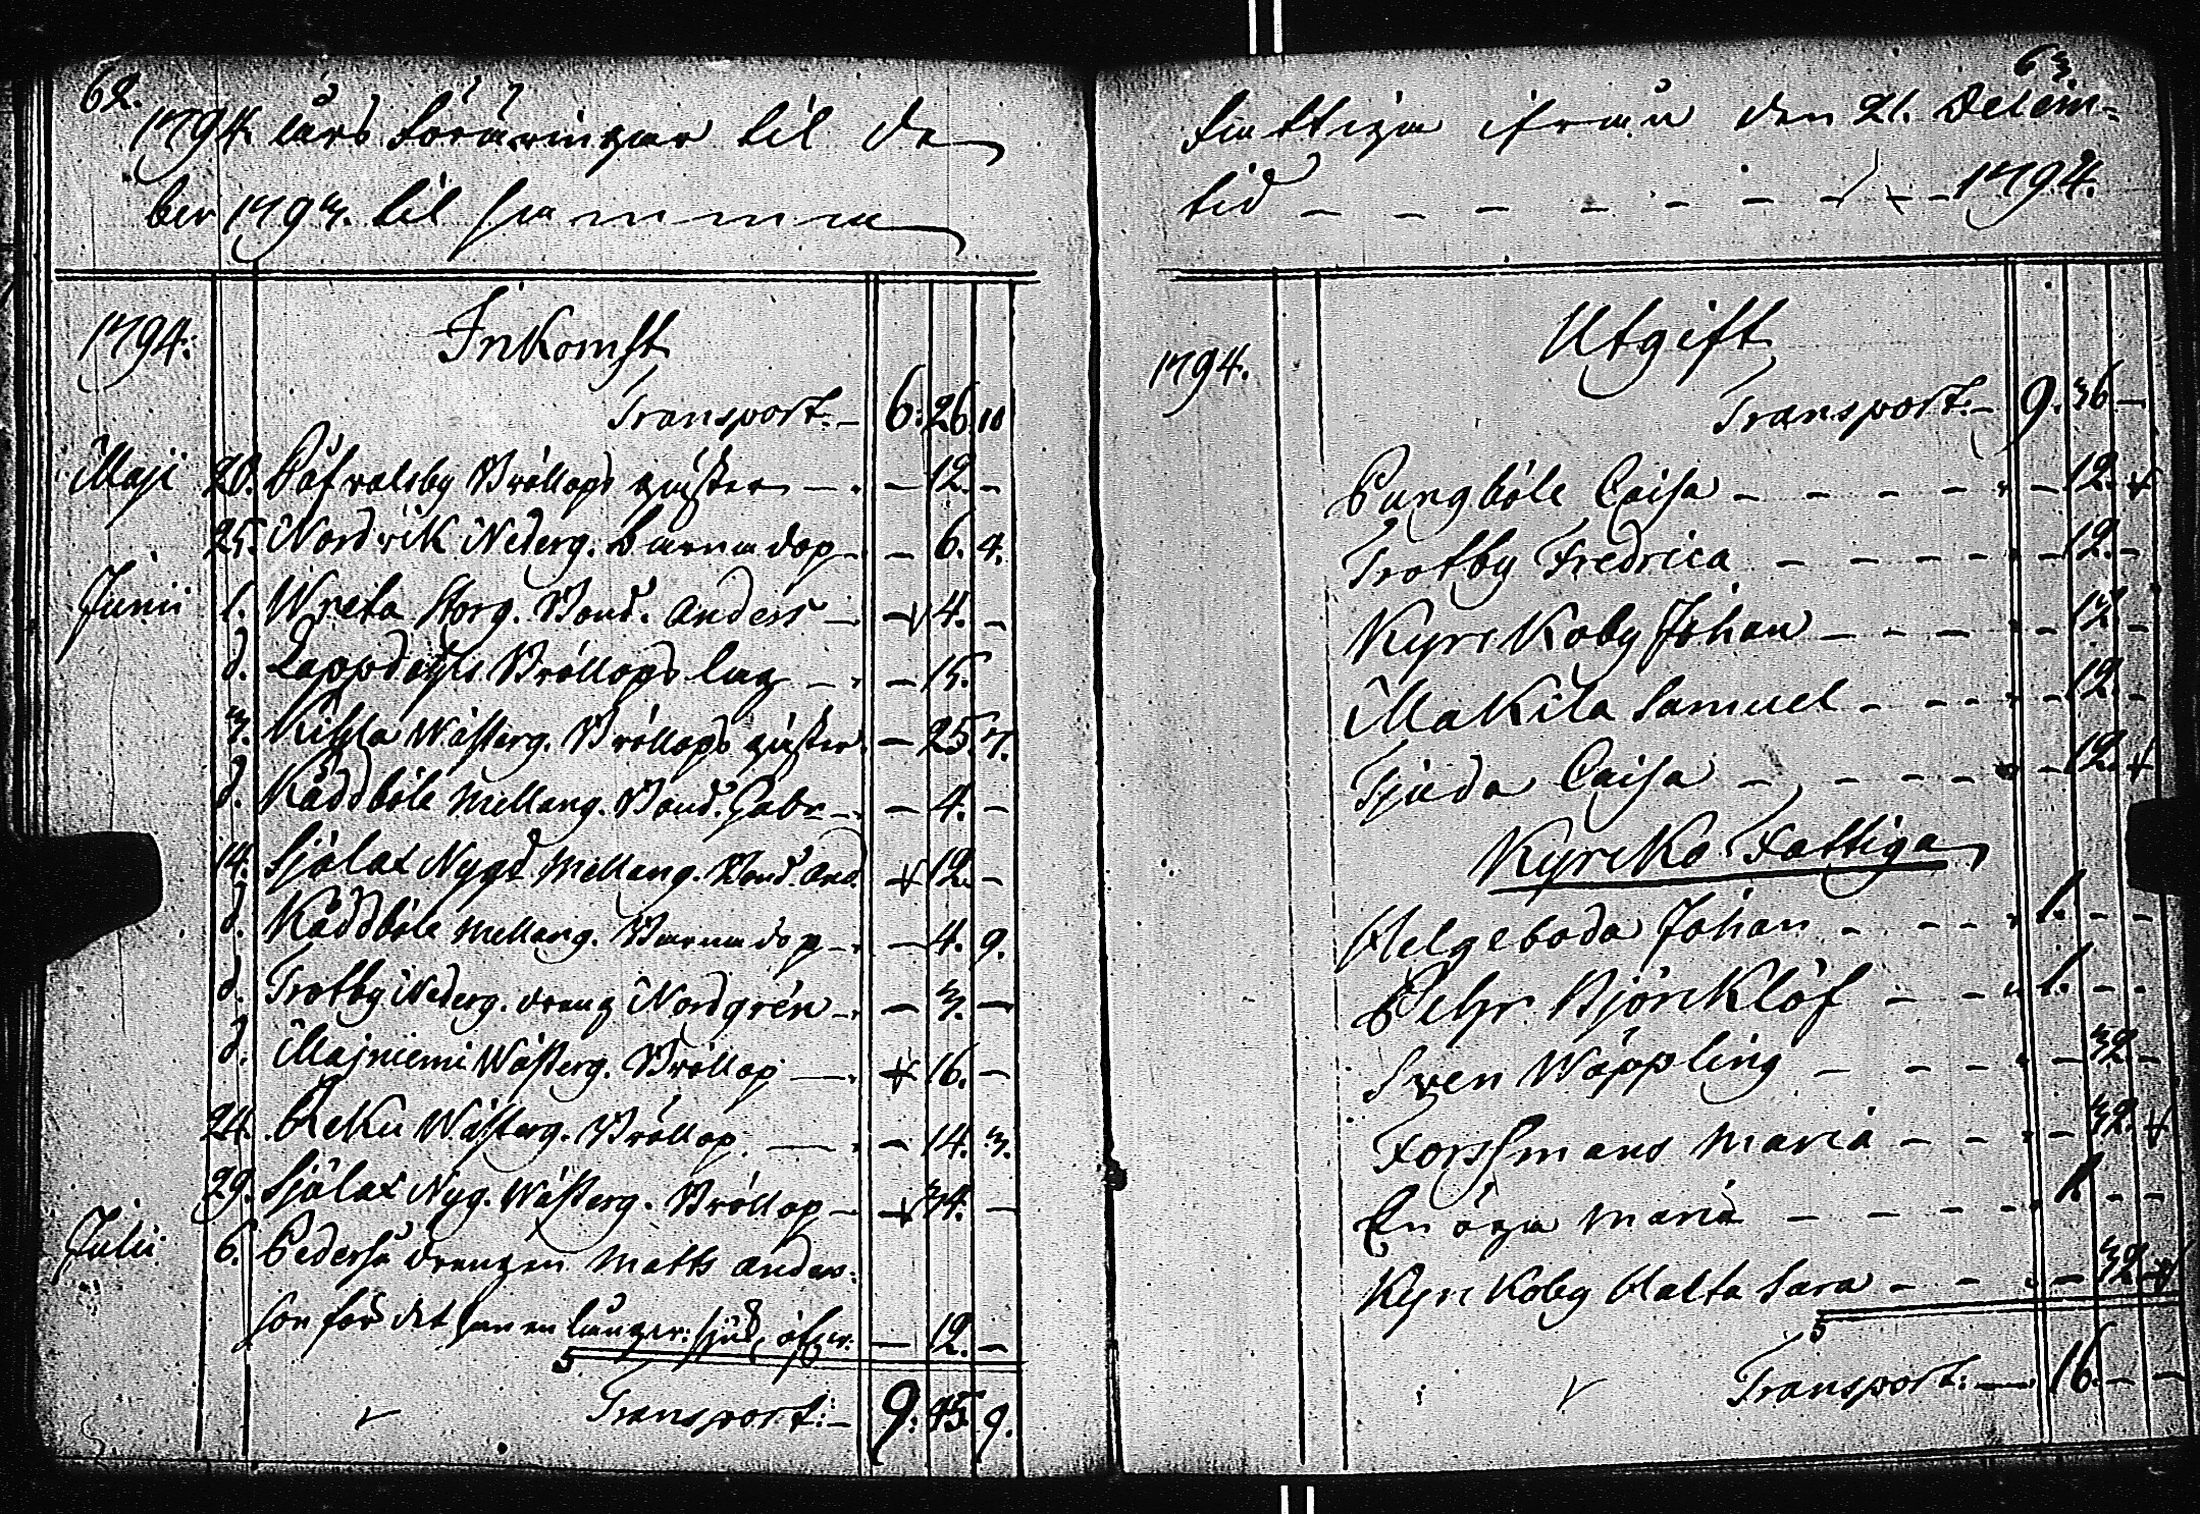 62.
1794 års Föräringar til de
ber 1793. til samma
1794. Inkomst
Transport. – 6. 26. 10
Maji 20. Påfvalsby Bröllops gäster – 12. –
25. Nordvik Nederg. barnadop – 6. 4.
Junii 1. Wreta Storg. Bond. Anders – 4. –
d. Lappdahls Bröllops lag – 15.
3. Kihla Wästerg. Bröllops gäster – 25. 7.
d. Råddböle Mellang. Bond. Gabr. – 4. –
14. Sjölax Nygd Mellang. Bond. And. 12. –
d. Råddböle Mellang. Barnadop – 4. 9.
d. Trotby Nederg. dräng Nordgrén – 3. –
d. Majniemi Wästerg. Bröllop – 16. –
24. Reku Wästerg. Bröllop – 14. 3.
29. Sjölax Nyg. Wästerg. Bröllop – 34. –
Julii 6. Pederså Drängen Matts Anders:
son för det han en långer: sjuk – 12. –
5
Transport: – 9. 45. 9.
63.
Fattiga ifrån den 21. Decem-
tid – – – – – – – 1794.
1794. Utgift
Transport: – 9. 36. –
Pungböle Caisa – – – – 12.
Trotby Fredrica – – – – 12. –
Kyrckoby Johan – – – 12. –
Makila Samuel – – – – 12. –
Tjuda Caisa – – – – 12.
Kyrcko Fattiga
Helgeboda Johan – – – 1. – –
Pehr Björcklöf – – 1. – –
Sven Wäppling – – – – 32. –
Forssmans Maria – – – – 32.
Enöga Maria – – – – 1. – –
Kyrckoby Halta Sara – – – 32.
5
Transport: – 16. – –